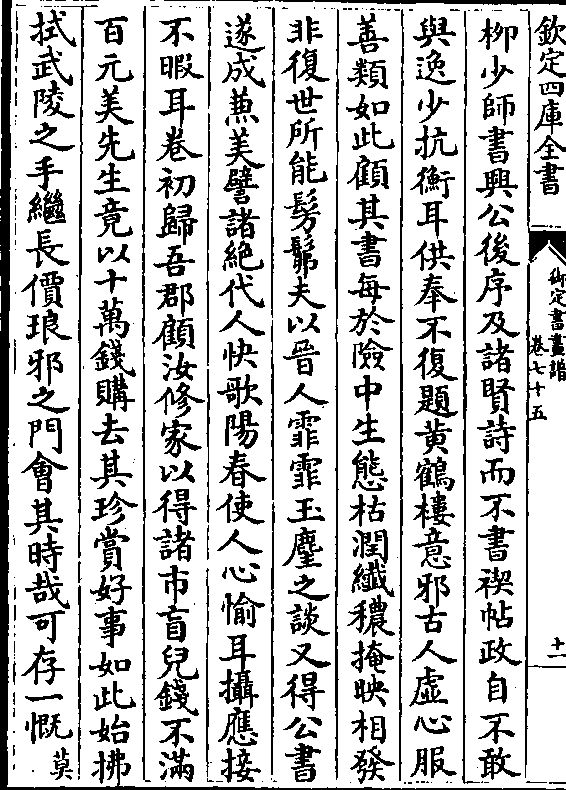 欽定四庫全書
御定書畫譜
卷七十五
十一
柳少師書興公後序及諸賢詩而不書禊帖政自不敢
與逸少抗衡耳供奉不復題黄鶴樓意邪古人虛心服
善類如此顧其書每於險中生態枯潤纖穠掩映相發
非復世所能髣髴夫以晉人霏霏玉麈之談又得公書
遂成兼美譬諸絶代人快歌陽春使人心愉耳攝應接
不暇耳卷初歸吾郡顧汝修家以得諸市盲兒錢不滿
百元美先生竟以十萬錢購去其珍賞好事如此始拂
拭武陵之手繼長價琅邪之門會其時哉可存一慨 莫